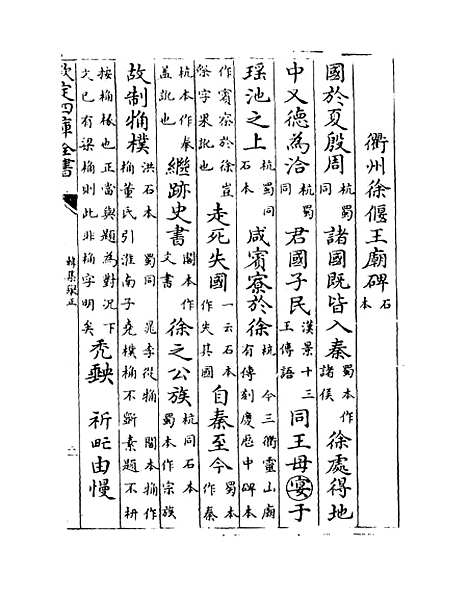 衢州徐偃王廟碑石本
國於夏殷周杭蜀同諸國既皆入秦蜀本作諸侯徐處得地
中文德為洽杭蜀同君國子民漢景十三王傳語同王母宴于
瑶池之上杭蜀同石本咸賔寮於徐杭本今三衢靈山廟有傳刻慶厯中碑本
作賔寮於徐豈祭字果訛也走死失國一云石本作失其國自秦至今蜀本作秦
杭本作奉蓋訛也繼跡史書閣本作文書徐之公族杭同石本蜀本作宗族
故制觕樸洪石本蜀同晁李從桷閣本桷作桷董氏引淮南子堯樸桷不斵素題不枅
按桷榱也正當與題為對况下文已有梁桷則此非桷字明矣秃鶆祈甿由慢
欽定四庫全書
韓集舉正